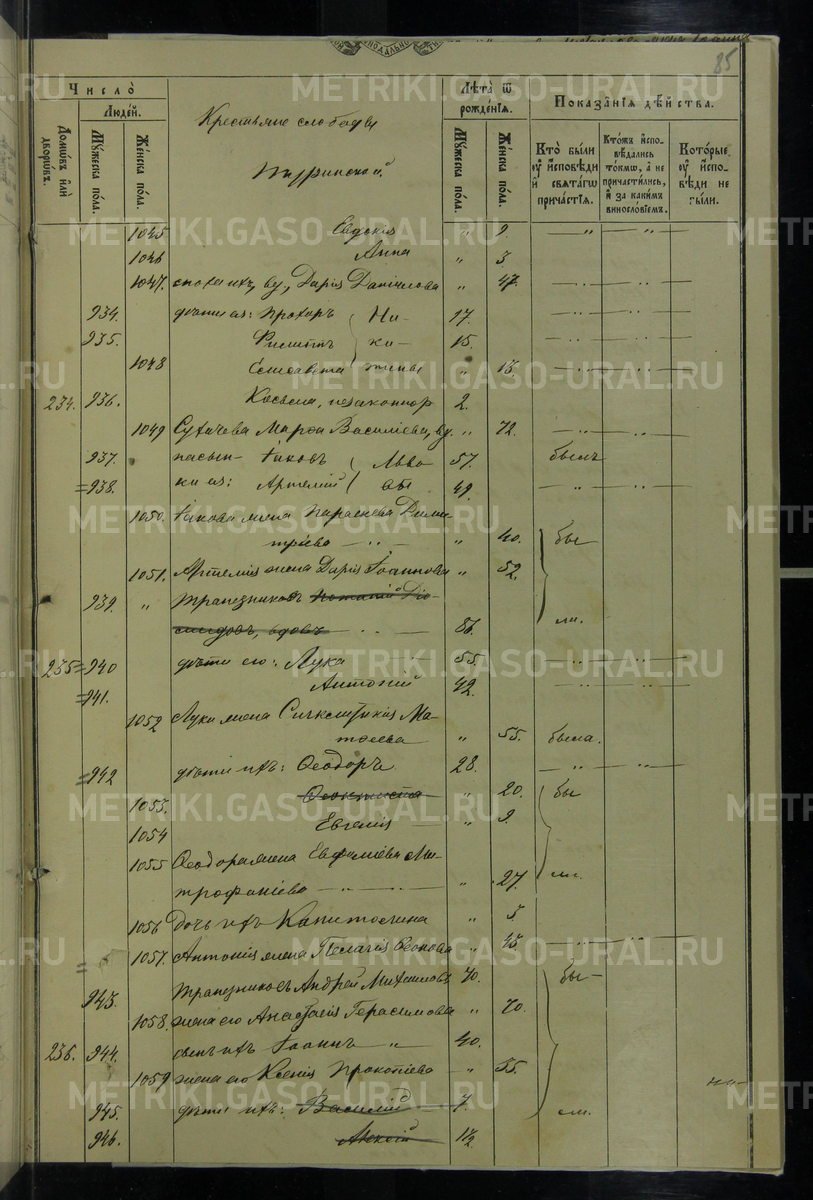 85
Число̀
Людéй.
Домѡ́въ илѝ дворѡ́въ.
Мꙋ́жеска по́ла.
Же́нска по́ла.
Крестьяне слободы
Лѣ́та ѿ рожде́нїѧ.
Мꙋ́жеска по́ла.
Же́нска по́ла.
Показа̑нїѧ дѣ́йства.
Кто̀ бы́ли ᲂу҆ и҆сповѣди и҆ свѧта́гѡ прича́стїѧ.
Кто́жъ и҆сповѣдались токмѡ, а҆ не причасти́лись, и҆ за каки́мъ винослѡ́вїемъ.
Кото́рые ᲂу҆ и҆сповѣди не бы́ли.
1045 Евдокія " 9 — " — " —
1046 Анна " 3.
1047. сноха ихъ, ву, Дарія Даніилова " 47.
934. дѣти ея: Прохоръ Ни- 17.
935. Филиппъ ки- 15.
1048 Елисавета " 13.
234. 936. незаконнор 2.
1049 Марѳа Василіева, ву. " 72.
937. пасын- Іаковъ Льво 57. былъ
=938. ки ея: Артемій вы 49.
1050. Іакова жена Параскева Дими-
тріева " 40. бы
1051. Артемія жена Дарія Іоаннова " 52.
939. " Трапезниковъ
вдовъ 86. ли.
235 =940 дѣти его: Лука 55.
=941. Антоній 42.
1052 Луки жена Синклитикія Ма-
тѳеева " 55. была.
=942 дѣти ихъ: Ѳеодоръ 28.
1053. Ѳеоктиста " 20. бы
1054 Евгенія " 9.
1055 Ѳеодора жена Евфимія Ми-
трофаніева " 27. ли.
1056 Дочь ихъ Капитолина " 3.
1057. Антонія жена Пелагія " 45.
943. Трапезниковъ Андрей Михаиловъ 70. бы-
1058. жена его Анастасія Герасимова " 70.
236. 944. сынъ ихъ Іоаннъ " 40.
1059 жена его Ксенія Прокопіева " 35.
945. дѣти ихъ: Василій 7. ли.
946. Алексій 1½
METRIKI.GASO-URAL.RU